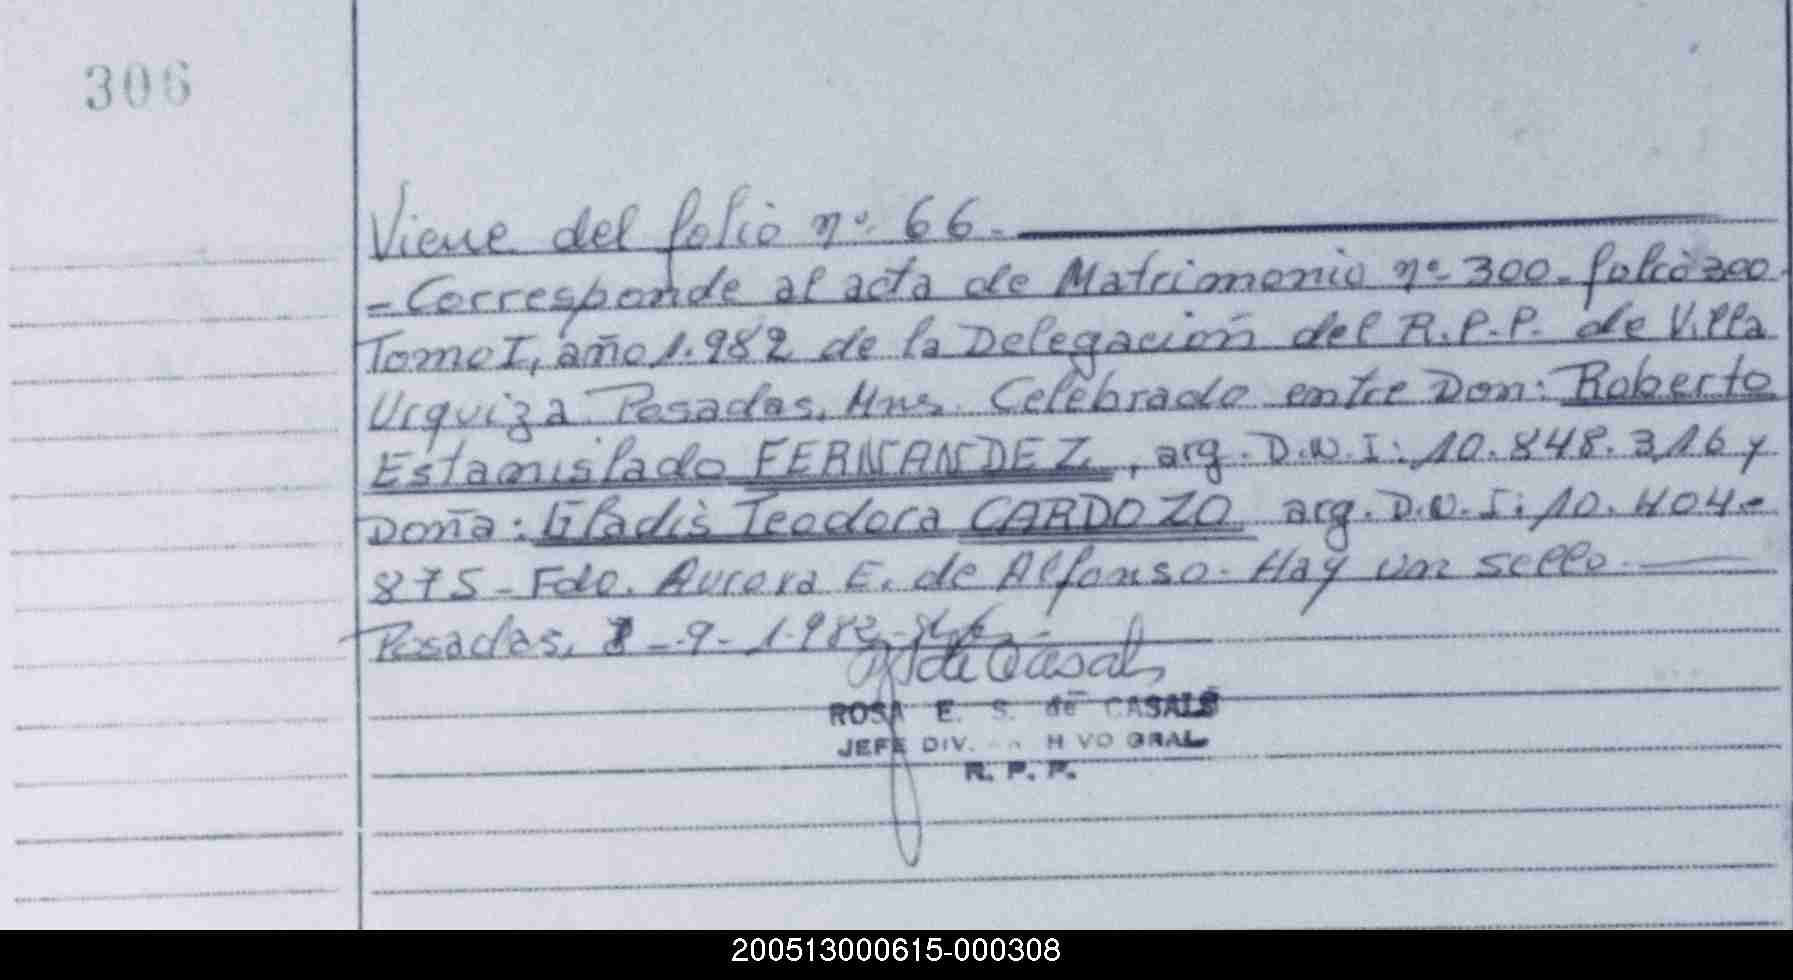 306
Viene del folio nº 66.
- Corresponde al acta de Matrimonio nº 300. folio 300.
Tomo I, año 1.982 de la Delegación del R.P.P. de Villa
Urquiza. Posadas, Mns. Celebrado entre Don: Roberto
Estanislado FERNANDEZ, arg. D.N.I: 10.848.316 y
Doña: Gladis Teodora CARDOZO arg. D.N.I: 10.404.-
875 - Fdo. Aurora E. de Alfonso. Hay un sello.
Posadas, -9-1.982
de Casals
ROSA E. S. de CASALS
JEFE DIV. GRAL
R. P. P.
200513000615-000308